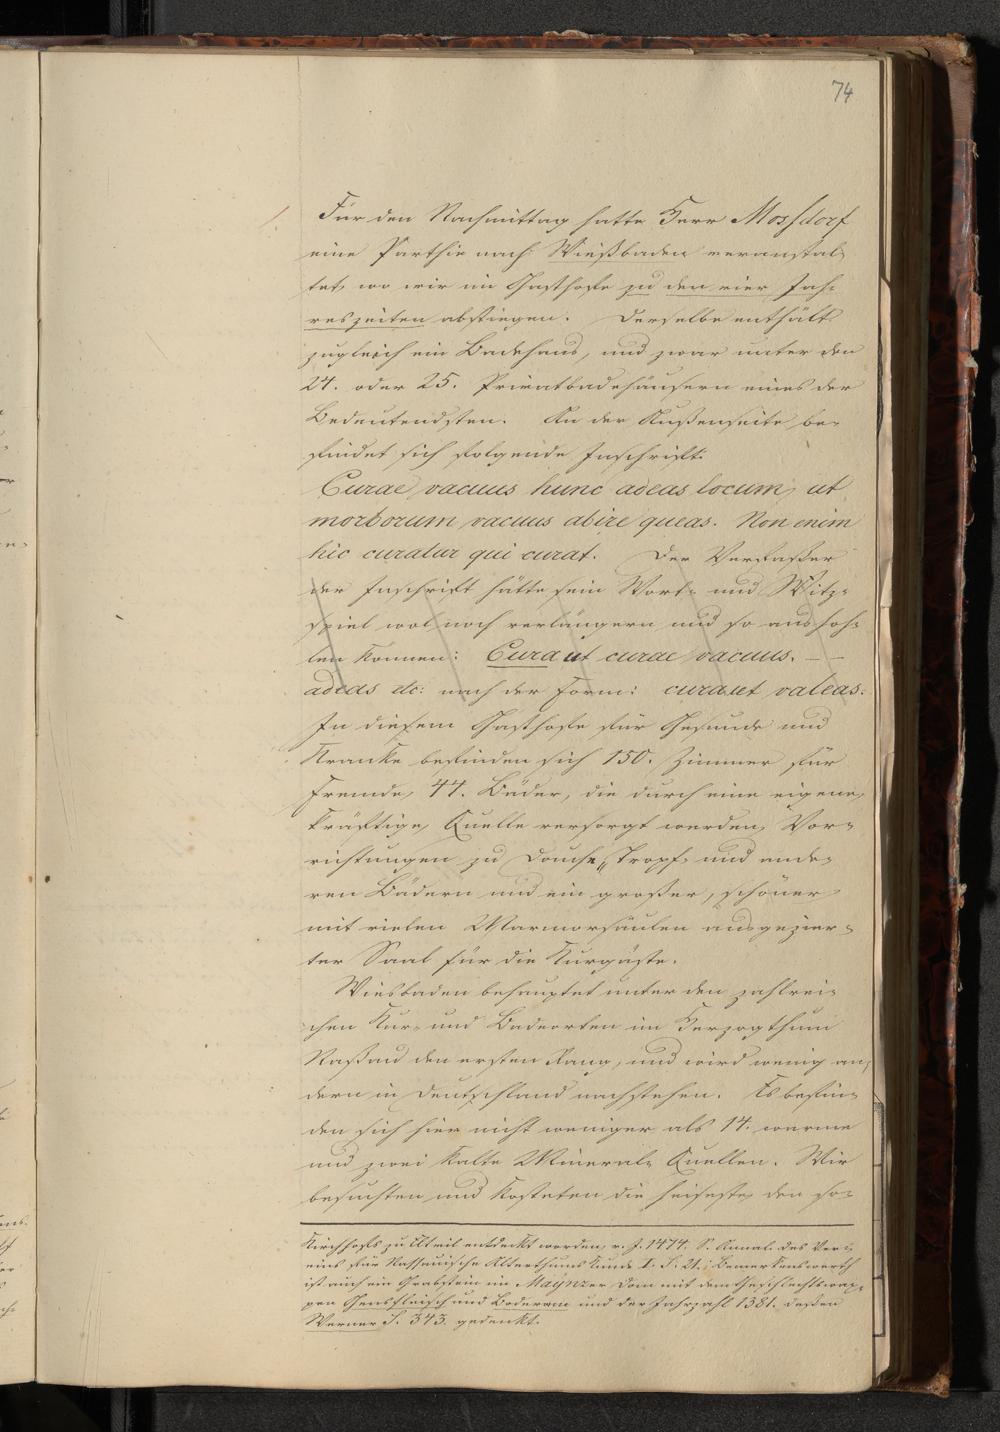 74
Für den Nachmittag hatte Herr Mossdorf
eine Parthie nach Wießbaden veranstal-
tet, wo wir im Gasthofe zu den vier Jah-
reszeiten abstiegen. Derselbe enthält
zugleich ein Badehaus, und zwar unter den
24. oder 25. Privatbadehäusern eines der
Bedeutendsten. An der Außenseite be-
findet sich folgende Inschrift:
Curae vacuus hunc adeas locum, ut
morborum vacuus abire queas. Non enim
hic curatur qui curat. Der Verfaßer
der Inschrift hätte sein Wort- und Witz-
spiel wol noch verlängern und so anhoh-
len können: Cura ut curae vacuus. — —
adeas etc: nach der Form: cura ut valeas.
In diesem Gasthofe für Gesunde und
Kranke befinden sich 150. Zimmer für
Fremde, 44. Bäder, die durch eine eigene,
kräftige Quelle versorgt werden, Vor-
richtungen zu Douche, Tropf- und ande-
ren Bädern und ein großer, schöner
mit vielen Marmorsäulen ausgezier-
ter Saal für die Kurgäste.
Wiesbaden behauptet unter den zahlrei-
chen Kur- und Badeorten im Herzogthum
Naßau den ersten Rang, und wird wenig an-
dern in Deutschland nachstehen. Es befin-
den sich hier nicht weniger als 14. warme
und zwei kalte Mineral-Quellen. Wir
besuchten und kosteten die heiseste, den so-
Kirchhofs zu Altvil entdeckt worden, v. J. 1474. S. Annal. des Ver-
eins für Nassauische Alterthumskunde I. S. 21. Bemerkenswerth
ist auch ein Grabstein im Maynzer Dom mit dem Geschlechtswap-
pen Gensfleisch und Bodemm und der Jahrzahl 1381. deßen
Werner S. 343. gedenkt.